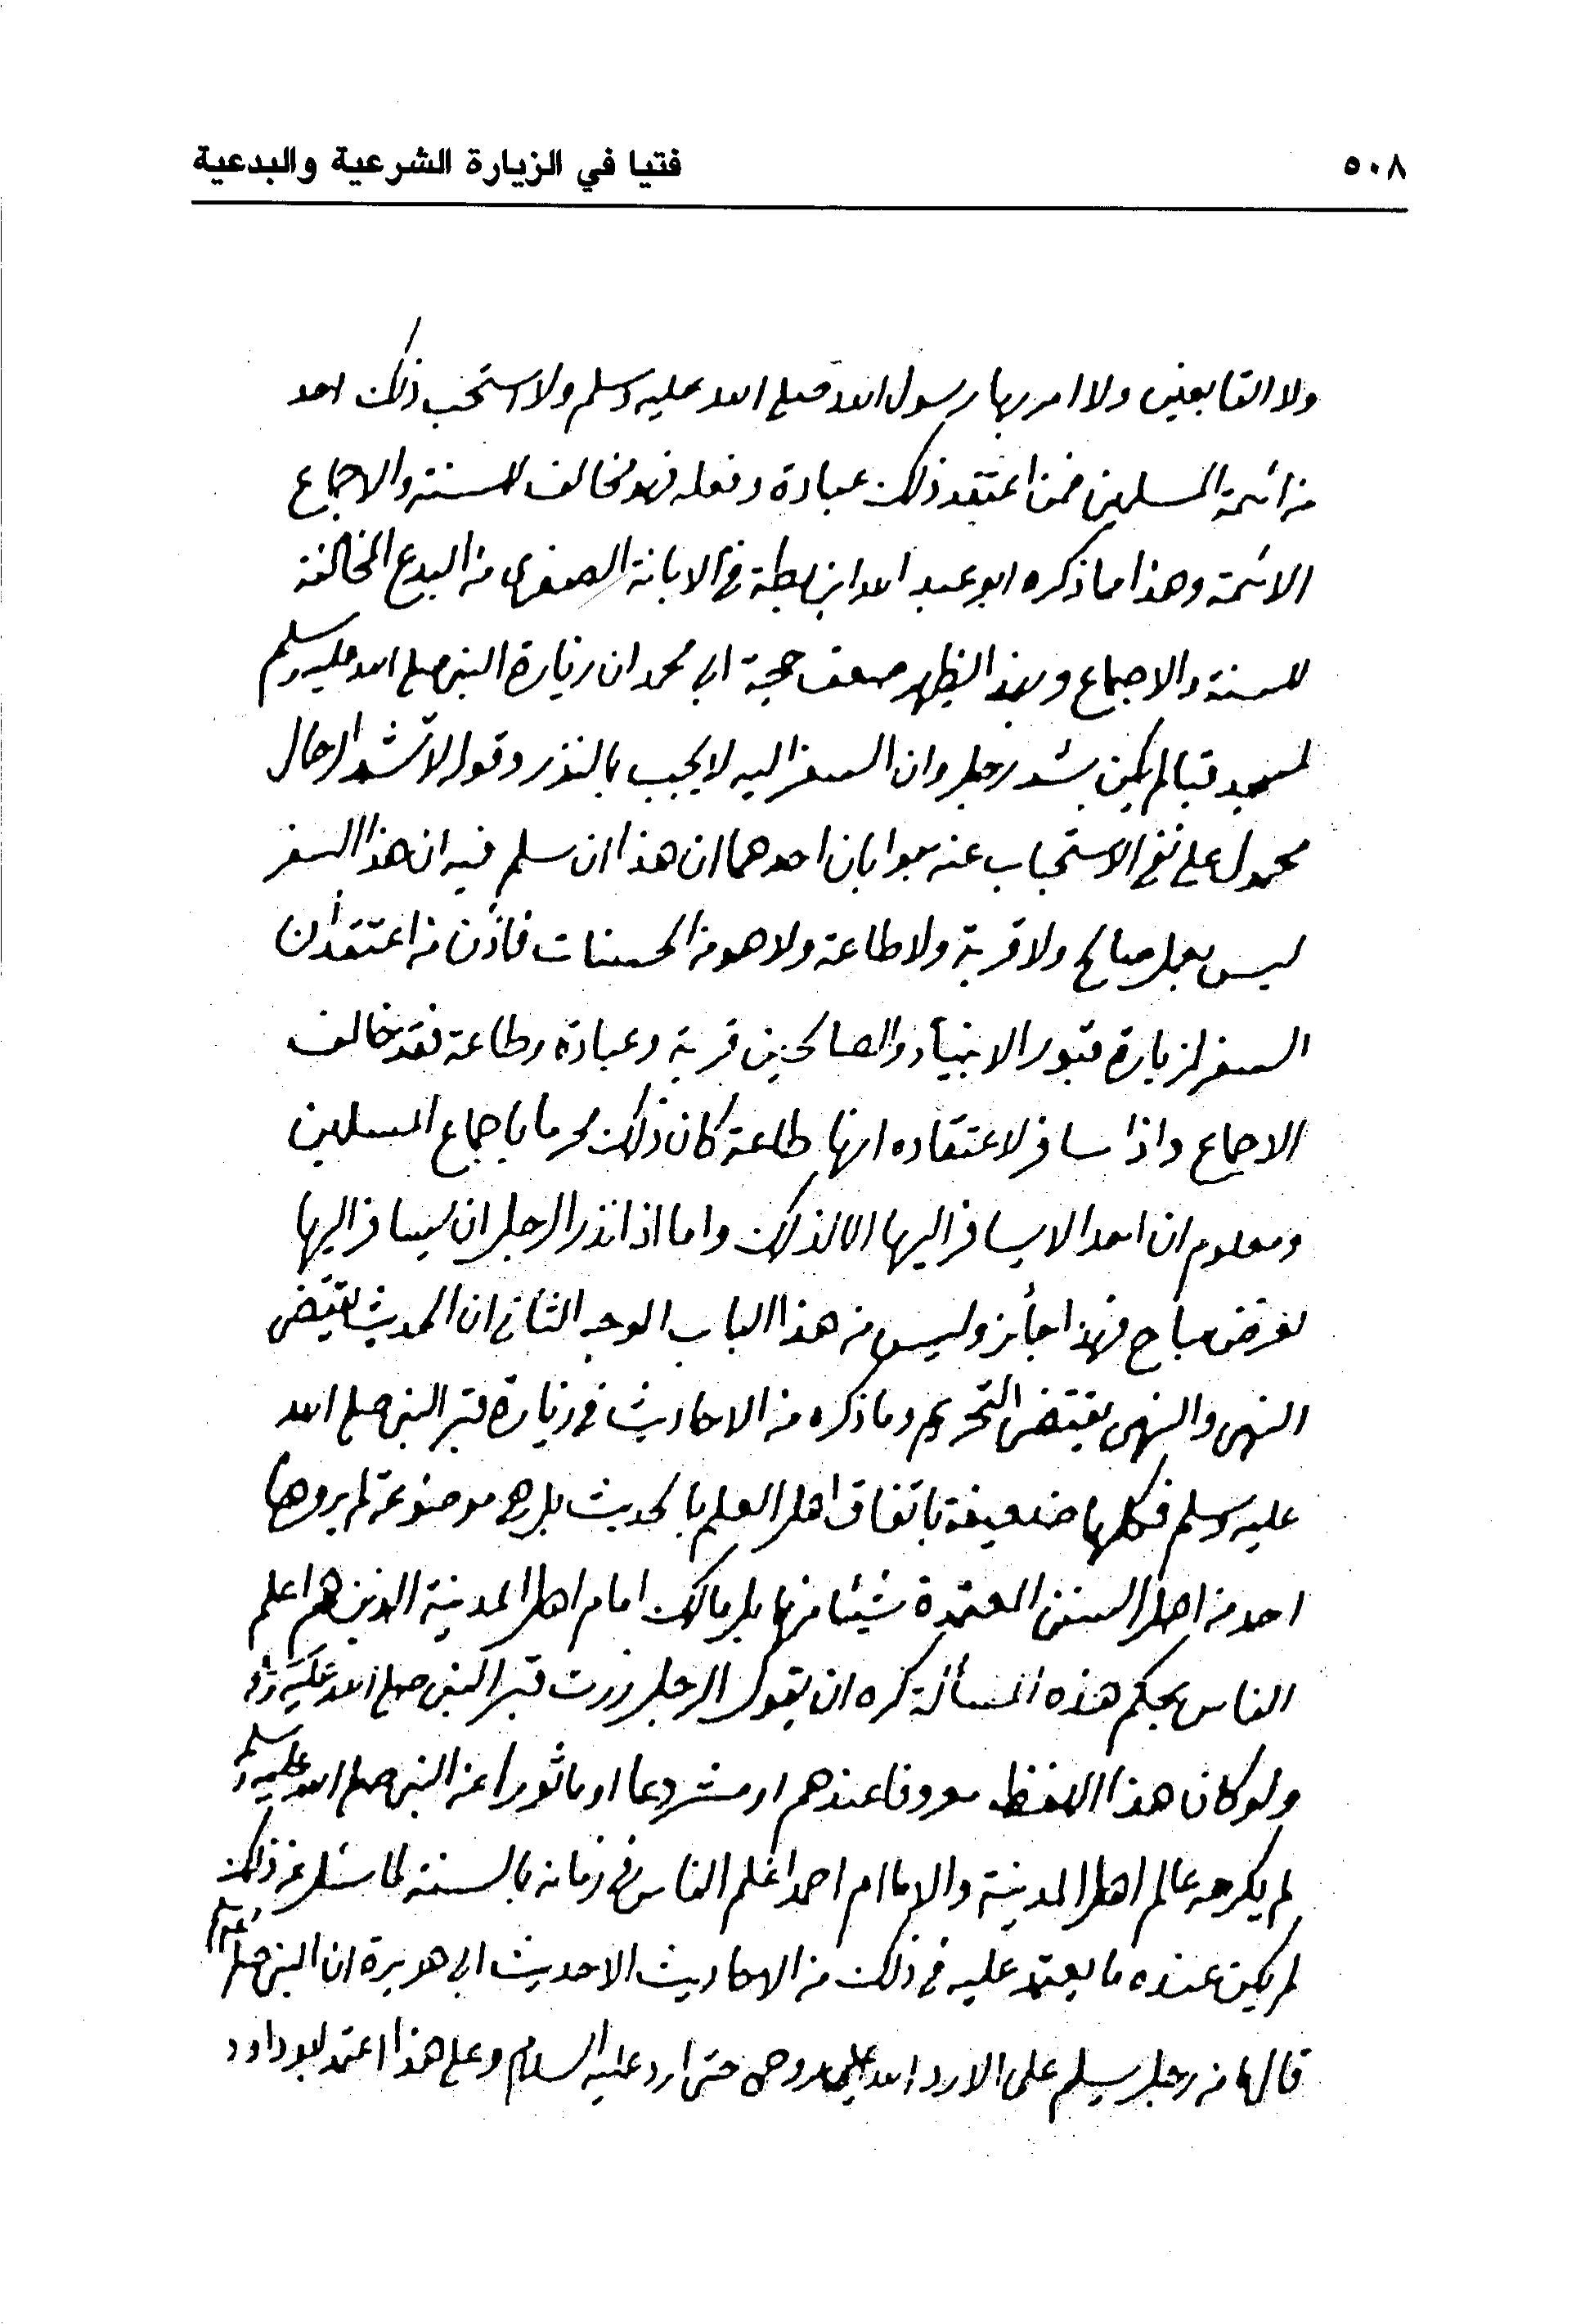 ٥٠٨
فتيا في الزيارة الشرعية والبدعية
ولا التابعين ولا امر بها رسول الله صلى الله عليه وسلم ولا استحب ذلك احد
من ائمة المسلمين فمن اعتقد ذلك عبادة وفعله فهو مخالف للسنة والاجماع
الائمة وهذا مما ذكره ابو عبد الله ابن بطة في الابانة الصغرى من البدع المخالفة
للسنة والاجماع وبهذا يظهر ضعف حجة ابي محمد ان زيارة النبي صلى الله عليه وسلم
لمسجد قبا لم يكن بشد رحل وان السفر اليه لا يجب بالنذر وقوله لا تشد الرحال
محمول على نفي الاستحباب عنه جوابان احدهما ان هذا ان سلم فيه ان هذا السفر
ليس بعمل صالح ولا قربة ولا طاعة ولا هو من الحسنات فاذن من اعتقد أن
السفر لزيارة قبور الانبياء والصالحين قربة وعبادة وطاعة فقد خالف
الاجماع واذا سافر لاعتقاده انها طاعة كان ذلك محرما باجماع المسلمين
ومعلوم ان احدا لا يسافر اليها الا لذلك واما اذا نذر الرجل ان يسافر اليها
لغرض مباح فهذا جائز وليس من هذا الباب الوجه الثاني ان الحديث يقتضي
النهي والنهي يقتضي التحريم وما ذكره من الاحاديث في زيارة قبر النبي صلى الله
عليه وسلم فكلها ضعيفة باتفاق اهل العلم بالحديث بل هي موضوعة لم يروها
احد من اهل السنن المعتمدة شيئا منها بل مالك امام اهل المدينة الذين هم اعلم
الناس بحكم هذه المسألة كره ان يقول الرجل زرت قبر النبي صلى الله عليه
ولو كان هذا اللفظ معروفا عندهم او مشروعا او ماثورا عن النبي صلى الله عليه وسلم
لم يكرهه عالم اهل المدينة والامام احمد اعلم الناس في زمانه بالسنة لما سئل عن ذلك
لم يكن عنده ما يعتمد عليه في ذلك من الاحاديث الا حديث ابي هريرة ان النبي صلى
قال ما من رجل يسلم على الا رد الله علي روحي حتى ارد عليه السلام وعلى هذا اعتمد ابو داود